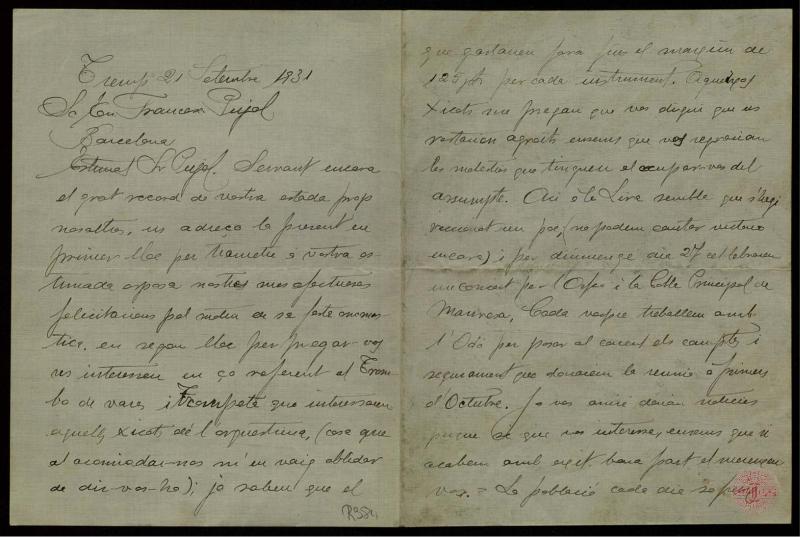 Tremp 21 Setembre 1931
Sr. En Francesc Pujol
Barcelona
Estimat Sr Pujol. Servant encara
el grat record de vostra estada prop
nosaltres, us adreço la present en
primer lloc per trametre a vostra es-
timada esposa nostres mes afectuoses
felicitacions pel motiu de sa festa onomas-
tica, en segon lloc per pregar-vos
us interessem en ço referent al Trom-
bó de vares i Trompeta que interessaven
aquells xicots de l'orquestrina, (cosa que
al acomiadar-nos m'en vaig oblidar
de dir-vos-ho); ja saben que el
R954
que gastarien fora fins el maxim de
125 pts per cada instrument. Aquests
xicots me pregan que vos digui que us
restarian agraits ensems que vos
les molesties que tinguen el ocupar-vos del
assumpte. Aci à la Lira sembla que s'hagi
reaccionat un poc, (no podem cantar victoria
encara) i per diumenge dia 27 celebrarem
un concert per l'Orfeó i la Cobla Principal de
Manresa. Cada vespre treballem amb
l'Odó per posar al corrent els comptes i
segurament que donarem la reunió à primers
d'Octubre. Ja vos aniré donan noticies
puig se que vos interessa, ensems que si
acabem amb exit bona part el mereixeu
vos. = La població cada dia